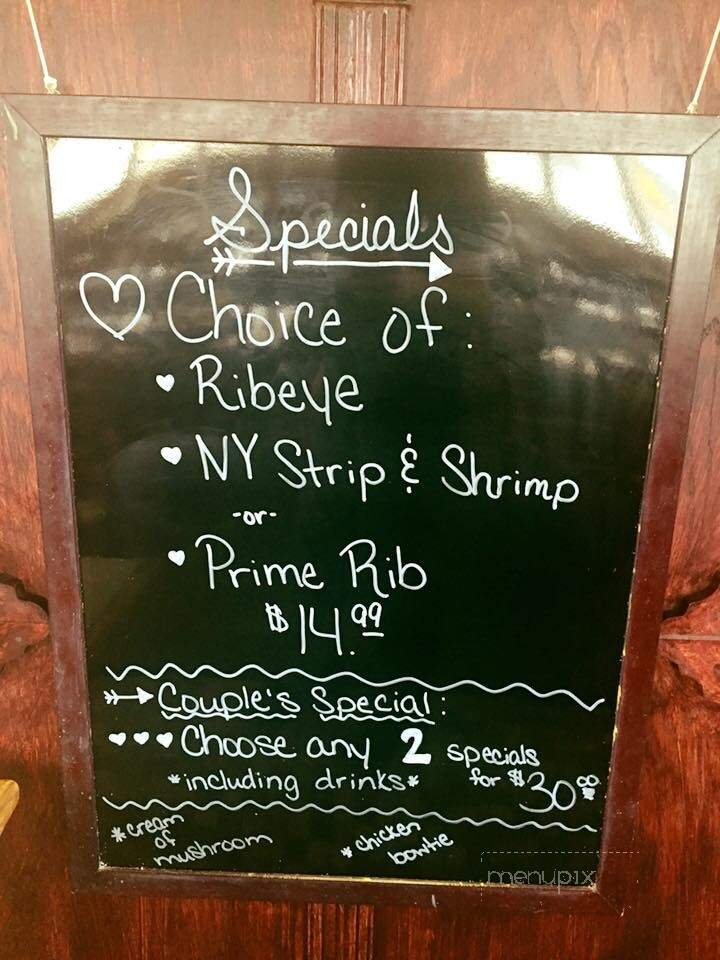 Specials
Choice of:
Ribeye
NY Strip & Shrimp
-or-
Prime Rib
$14.99
Couple's Special:
Choose any 2 specials
*including drinks* for $30.00
*cream
of
mushroom
*chicken
bowtie
menupix